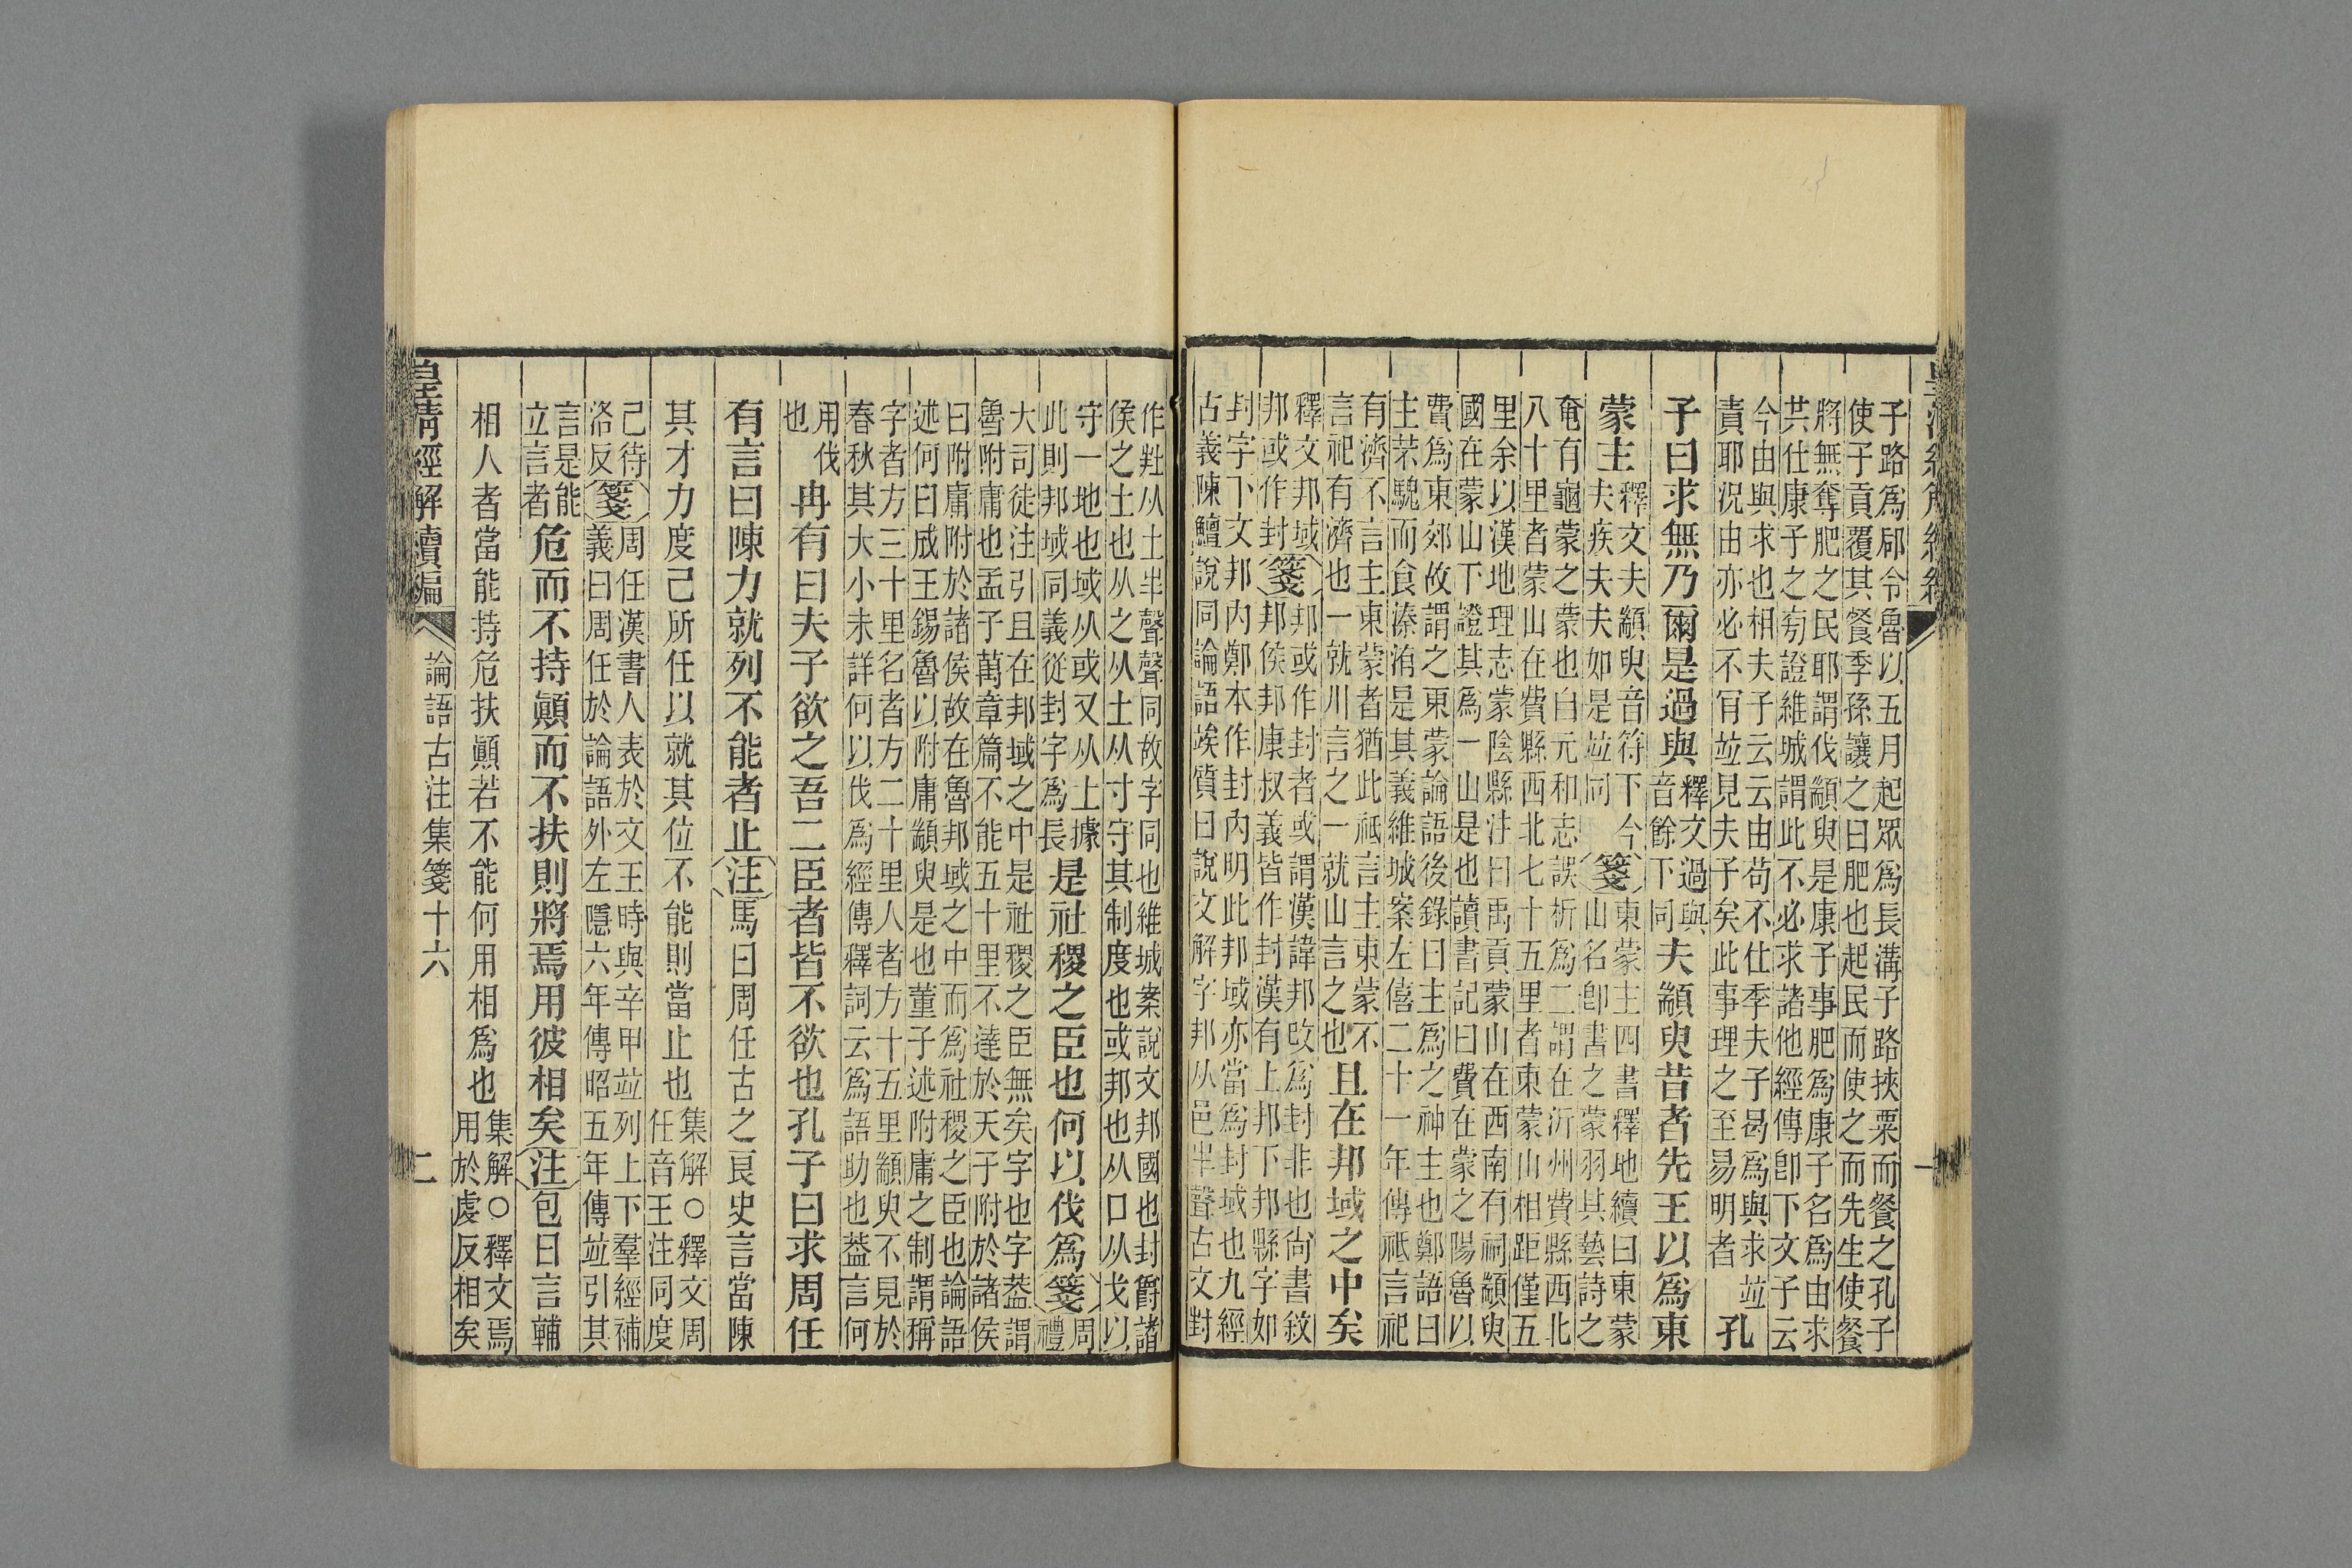 子路爲郈令魯以五月起眾爲長溝子路挾粟而餐之孔子
使子貢覆其餐季孫讓之曰肥也起民而使之而先生使餐
將無奪肥之民耶謂伐顓臾是康子事肥爲康子名爲由求
共仕康子之切證維城謂此不必求諸他經傳卽下文子云
今由與求也相夫子云云由苟不仕季夫子曷爲與求竝
責耶況由亦必不肎竝見夫子矣此事理之至易明者
孔
子曰求無乃爾是過與
釋文過與
音餘下同
夫顓臾昔者先王以爲東
蒙主
釋文夫顓臾音符下今
夫疾夫夫如是竝同
箋
東蒙主四書釋地續曰東蒙
山名卽書之蒙羽其藝詩之
奄有龜蒙之蒙也自元和志誤析爲二謂在沂州費縣西北
八十里者蒙山在費縣西北七十五里者東蒙山相距僅五
里余以漢地理志蒙陰縣注曰禹貢蒙山在西南有祠顓臾
國在蒙山下證其爲一山是也讀書記曰費在蒙之陽魯以
費爲東郊故謂之東蒙論語後錄曰主爲之神主也鄭語曰
主芣騩而食溱洧是其義維城案左僖二十一年傳祗言祀
有濟不言主東蒙者猶此祗言主東蒙不
言祀有濟也一就川言之一就山言之也
且在邦域之中矣
釋文邦域
邦或作封
箋
邦或作封者或謂漢諱邦改爲封非也尙書敘
邦侯邦康叔義皆作封漢有上邦下邦縣字如
封字下文邦內鄭本作封內明此邦域亦當爲封域也九經
古義陳鱣說同論語竢質曰說文解字邦从邑丰聲古文封
作𡉚从土丰聲聲同故字同也維城案說文邦國也封爵諸
侯之土也从之从土从寸守其制度也或邦也从口从戈以
守一地也域从或又从土據
此則邦域同義從封字爲長
是社稷之臣也何以伐爲
箋
周
禮
大司徒注引且在邦域之中是社稷之臣無矣字也字葢謂
魯附庸也孟子萬章篇不能五十里不達於天子附於諸侯
曰附庸附於諸侯故在魯邦域之中而爲社稷之臣也論語
述何曰成王錫魯以附庸顓臾是也董子述附庸之制謂稱
字者方三十里名者方二十里人者方十五里顓臾不見於
春秋其大小未詳何以伐爲經傳釋詞云爲語助也葢言何
用伐
也
冉有曰夫子欲之吾二臣者皆不欲也孔子曰求周任
有言曰陳力就列不能者止
注
馬曰周任古之良史言當陳
其才力度己所任以就其位不能則當止也
集解○釋文周
任音王注同度
己待
洛反
箋
周任漢書人表於文王時與辛甲竝列上下羣經補
義曰周任於論語外左隱六年傳昭五年傳竝引其
言是能
立言者
危而不持顚而不扶則將焉用彼相矣
注
包曰言輔
相人者當能持危扶顚若不能何用相爲也
集解○釋文焉
用於虔反相矣
皇淸經解續編
論語古注集箋十六
二